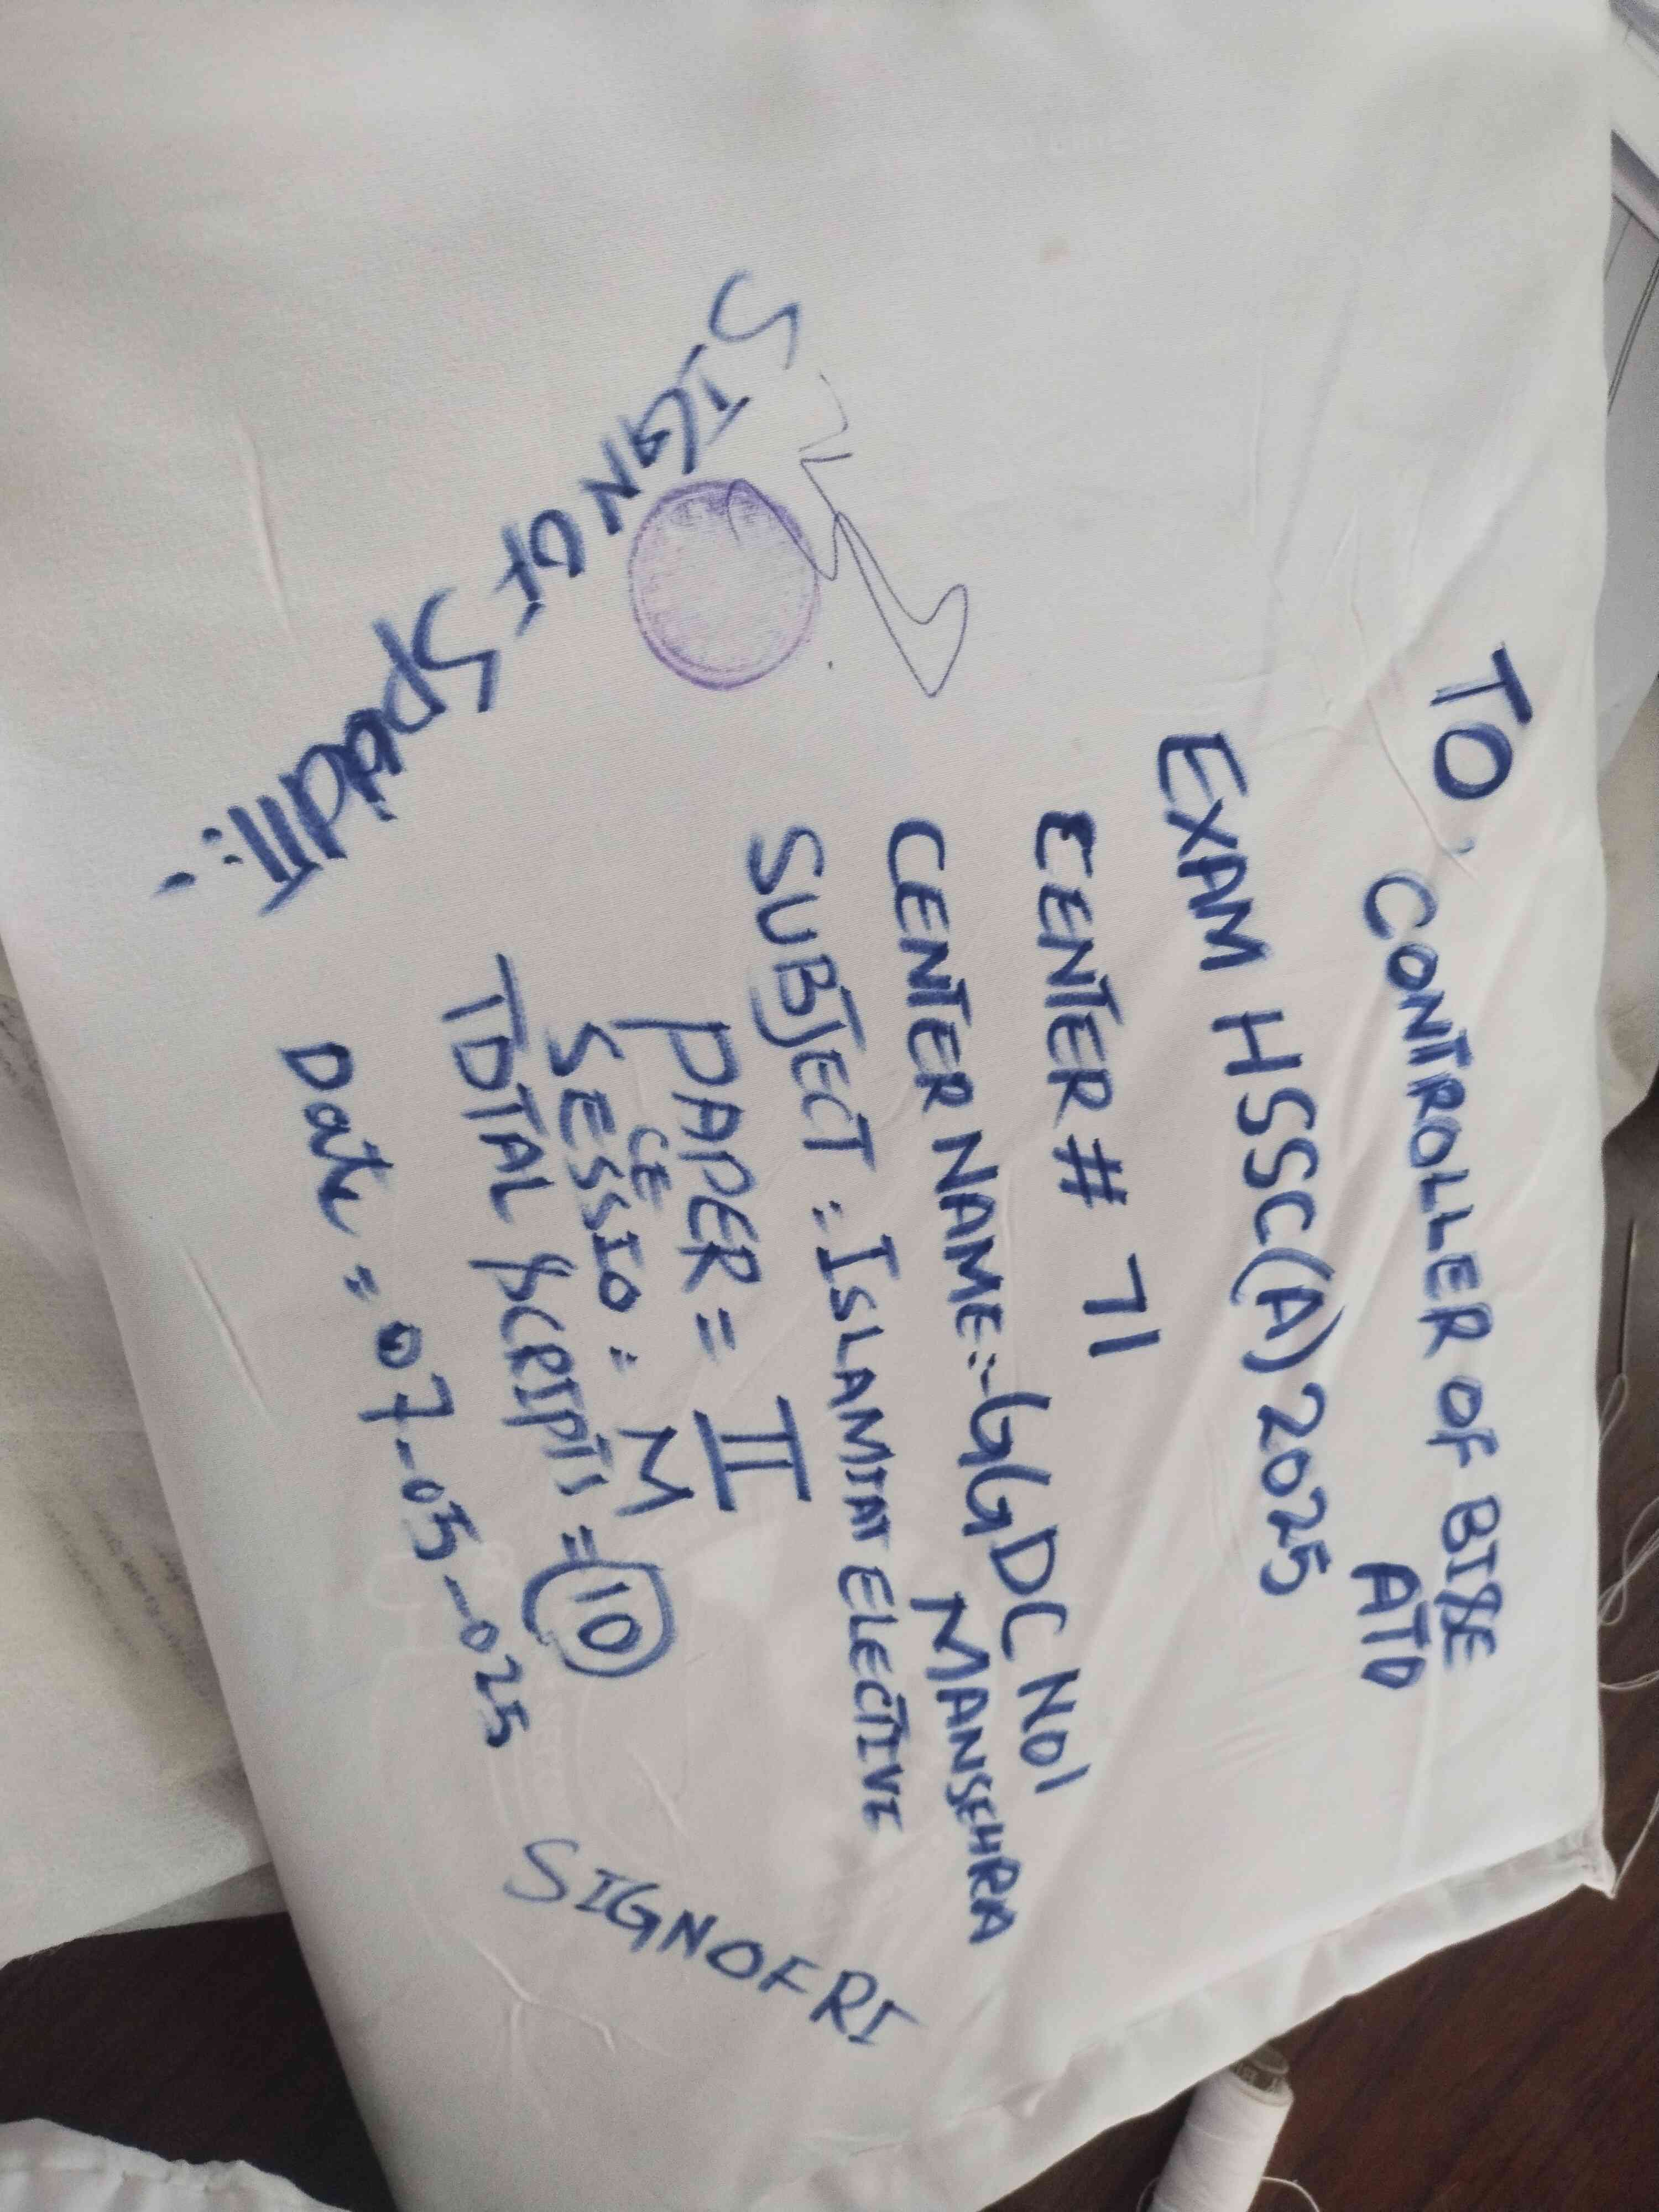 TO
CONTROLLER OF BISE
ATD
EXAM HSSC(A) 2025
CENTER # 71
CENTER NAME:-GGDC NO1
MANSEHRA
SUBJECT : ISLAMIAT ELECTIVE
PAPER = II
CE
SESSIO : M
TOTAL SCRIPTS = 10
Date = 07-05-025
SIGN OF
SIGN OF RI